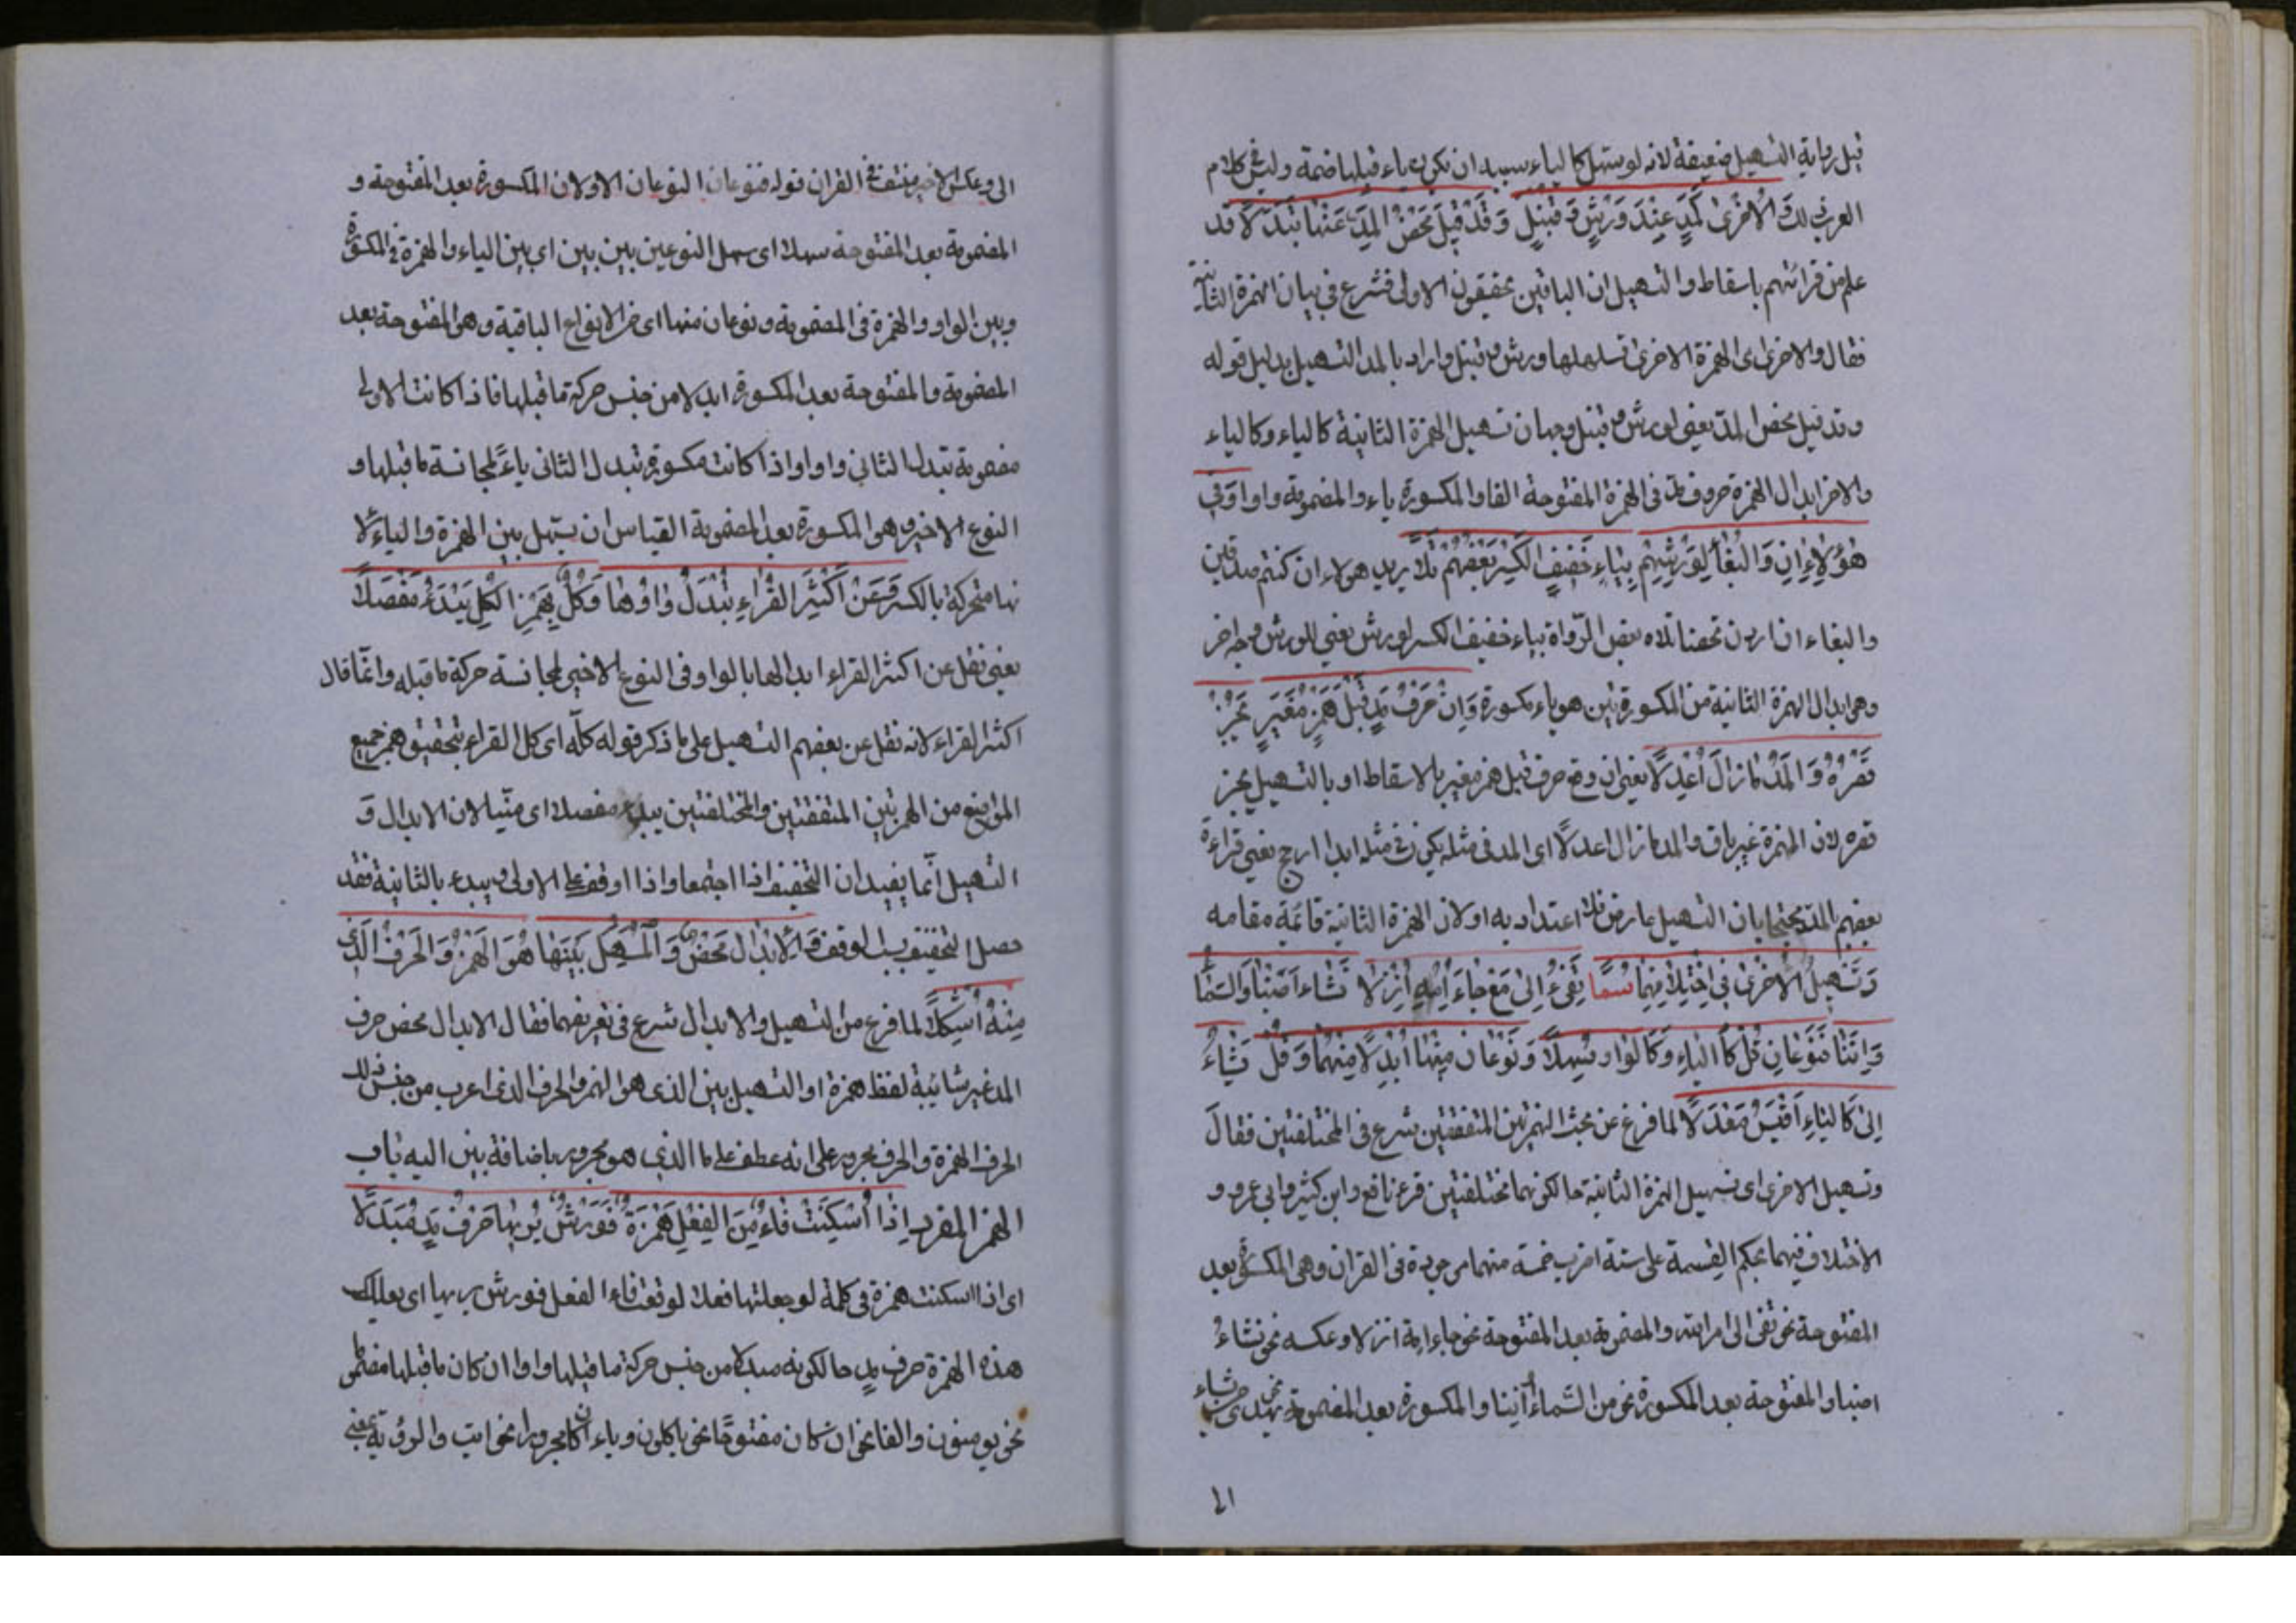 قيل رواية التسهيل ضعيفة لانه لو سهل كالياء سببه ان تكون ياء قبلها ضمة وليس في كلام
العرب ذلك وَالْاُخْرىٰ كَمَدٍّ عِنْدَ وَرْشٍ وَ قُنْبُلٍ وَ قَدْ قِيلَ مَحْضُ الْمَدِّ عَنْهَا تَبَدَّلَا قد
علم من قرائتهم باسقاط والتسهيل ان الباقين يحققون الاولى فشرع في بيان الهمزة الثانية
فقال والاخرى اى الهمزة الاخرى تسهلها ورش و قنبل واراد بالمد التسهيل بدليل قوله
وقد قيل محض المدّ يعنى لورش و قنبل وجهان تسهيل الهمزة الثانية كالياء وكالياء
والاخر ابدال الهمزة حروف مد فى الهمزة المفتوحة الفا والمكسورة ياء والمضمومة واوا وَفِي
هٰؤُلَاءِ اِنْ وَالْبِغَا اِنْ لِوَرْشِهِمْ بِيَاءٍ خَفِيفِ الْكَسْرِ بَعْضُهُمْ تَلَا يريد هولاء ان كنتم صدقين
والبغاء ان اردن تحصنا تلاه بعض الرّواة بياء خفيف الكسر لورش يعني للورش وجه اخر
وهى ابدال الهمزة الثانية من المكسورتين هو ياء مكسورة وَاِنْ حَرْفُ مَدٍّ قَبْلَ هَمْزٍ مُغَيَّرٍ يَجُزْ
قَصْرُهُ وَ الْمَدُّ مَا زَالَ اَعْدَلَا يعنى ان وقع حرف قبل همز مغير بالاسقاط او بالتسهيل يجز
قصره لان الهمزة غير باق والمد ما زال اعدلًا اى المد فى مثله يكون فى مثله ابدا ارجح يعنى قراءة
بعضهم بالمدّ محتجا بان التسهيل عارض فلا اعتداد به او لان الهمزة الثانية قائمة مقامه
وَ تَسْهِيلُ الْاُخْرىٰ فِي اخْتِلَافِهِمَا سَمَا تَفِيءَ اِلىٰ مَعْ جَاءَ اُمَّةً اُنْزِلَا نَشَاءُ اَصَبْنَا وَالسَّمَا
ءِ اَوِ ائْتِنَا فَنَوْعَانِ قُلْ كَالْيَاءِ وَ كَالْوَاوِ سُهِّلَا وَ نَوْعَانِ مِنْهَا اُبْدِلَا مِنْهُمَا وَ قُلْ يَشَاءُ
اِلىٰ كَالْيَاءِ اَقْيَسُ مَعْدَلَا لما فرغ عن بحث الهمزتين المتفقتين شرع فى المختلفتين فقال
وتسهيل الاخرى اى تسهيل الهمزة الثانية حال كونهما مختلفتين قرء نافع وابن كثير وابي عمرو و
الاختلاف فيهما بحكم القسمة على ستة اضرب خمسة منهما موجودة فى القران وهى المكسورة بعد
المفتوحة نحو تفىء الى امر الله والمضمومة بعد المفتوحة نحو جاء امة انزلا وعكسه نحو نشاءُ
اصبنا والمفتوحة بعد المكسورة نحو من السّماء اَئتنا والمكسورة بعد المضمومة نحو يهدى من يشاء
الى وعكس الاخير منتف فى القران قوله فنوعان النوعان الاولان المكسورة بعد المفتوحة و
المضمومة بعد المفتوحة سهلا اى سهل النوعين بين بين اى بين الياء والهمزة فى المكسورة
وبين الواو والهمزة فى المضمومة ونوعان منها اى من الانواع الباقية وهى المفتوحة بعد
المضمومة والمفتوحة بعد المكسورة ابدلا من جنس حركة ما قبلها فاذا كانت الاولى
مضمومة تبدل الثانى واوا واذا كانت مكسورة تبدل الثانى ياءً لمجانسة ما قبلها و
النوع الاخير وهى المكسورة بعد المضمومة القياس ان يسهل بين الهمزة والياء لا
نها متحركة بالكسر وَعَنْ اَكْثَرِ الْقُرَّاءِ تُبْدَلُ وَاوُهَا وَ كُلٌّ بِهَمْزِ الْكُلِّ يَبْدَءُ مُفَصِّلَا
يعنى نقل عن اكثر القراء ابدالها بالواو فى النوع الاخير لمجانسة حركة ما قبله وانّما قال
اكثر القراء لانه نقل عن بعضهم التسهيل على ما ذكر قوله كلّه اى كل القراء بتحقيق همز جميع
المواضع من الهمزتين المتفقتين والمختلفتين يبدء مفصلا اى مبيّنا لان الابدال وَ
التسهيل انّما يفيد ان التخفيف اذا اجتمعا واذا اوقف على الاولى ويبدء بالثانية فقد
حصل التخفيف بسبب الوقف وَ الْاِبْدَالُ مَحْضٌ وَ الْمُسَهَّلُ بَيْنَهَا هُوَ الْهَمْزُ وَ الْحَرْفُ الَّذِي
مِنْهُ اُشْكِلَا لما فرغ من التسهيل والابدال شرع فى تعريفهما فقال الابدال محض حرف
المد غير شائبة لفظ همزة او التسهيل بين الذى هو الهمز والحرف الذى اعرب من جنس ذلك
الحرف الهمزة والحرف مجرور على انه عطف على ما الذى هو مجرور باضافة بين اليه باب
الهمز المفرد اِذَا اُسْكِنَتْ فَاءٌ مِنَ الْفِعْلِ هَمْزَةٌ فَوَرْشٌ يُرِيهَا حَرْفَ مَدٍّ مُبَدَّلَا
اى اذا اسكنت همزة فى كلمة لو جعلتها فعلا لوقعت فاء الفعل فورش يريها اى يعلمك
هذه الهمزة حرف مدٍ حال كونه مبدلا من جنس حركة ما قبلها واوا ان كان ما قبلها مضموما
نحو يومنون والفا نحو ان كان مفتوحًا نحو ياكلون وياء ان كان مجرورا نحو ايت والرؤية يعنى